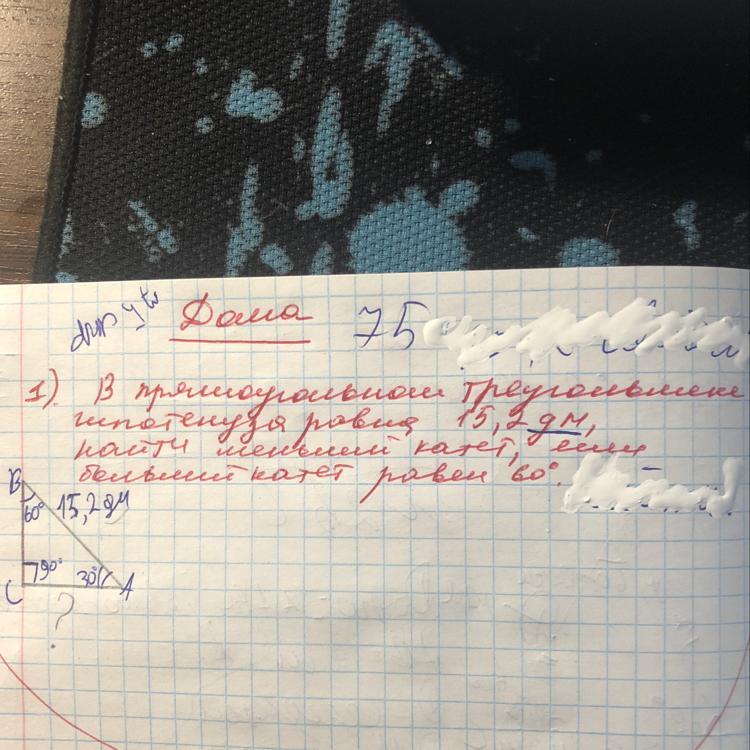 Дома 75
1) В прямоугольном треугольнике
гипотенуза равна 15,2 дм,
найти меньший катет, если
больший катет равен 60°.
B
60° 15,2 дм
90° 30°
C A
?